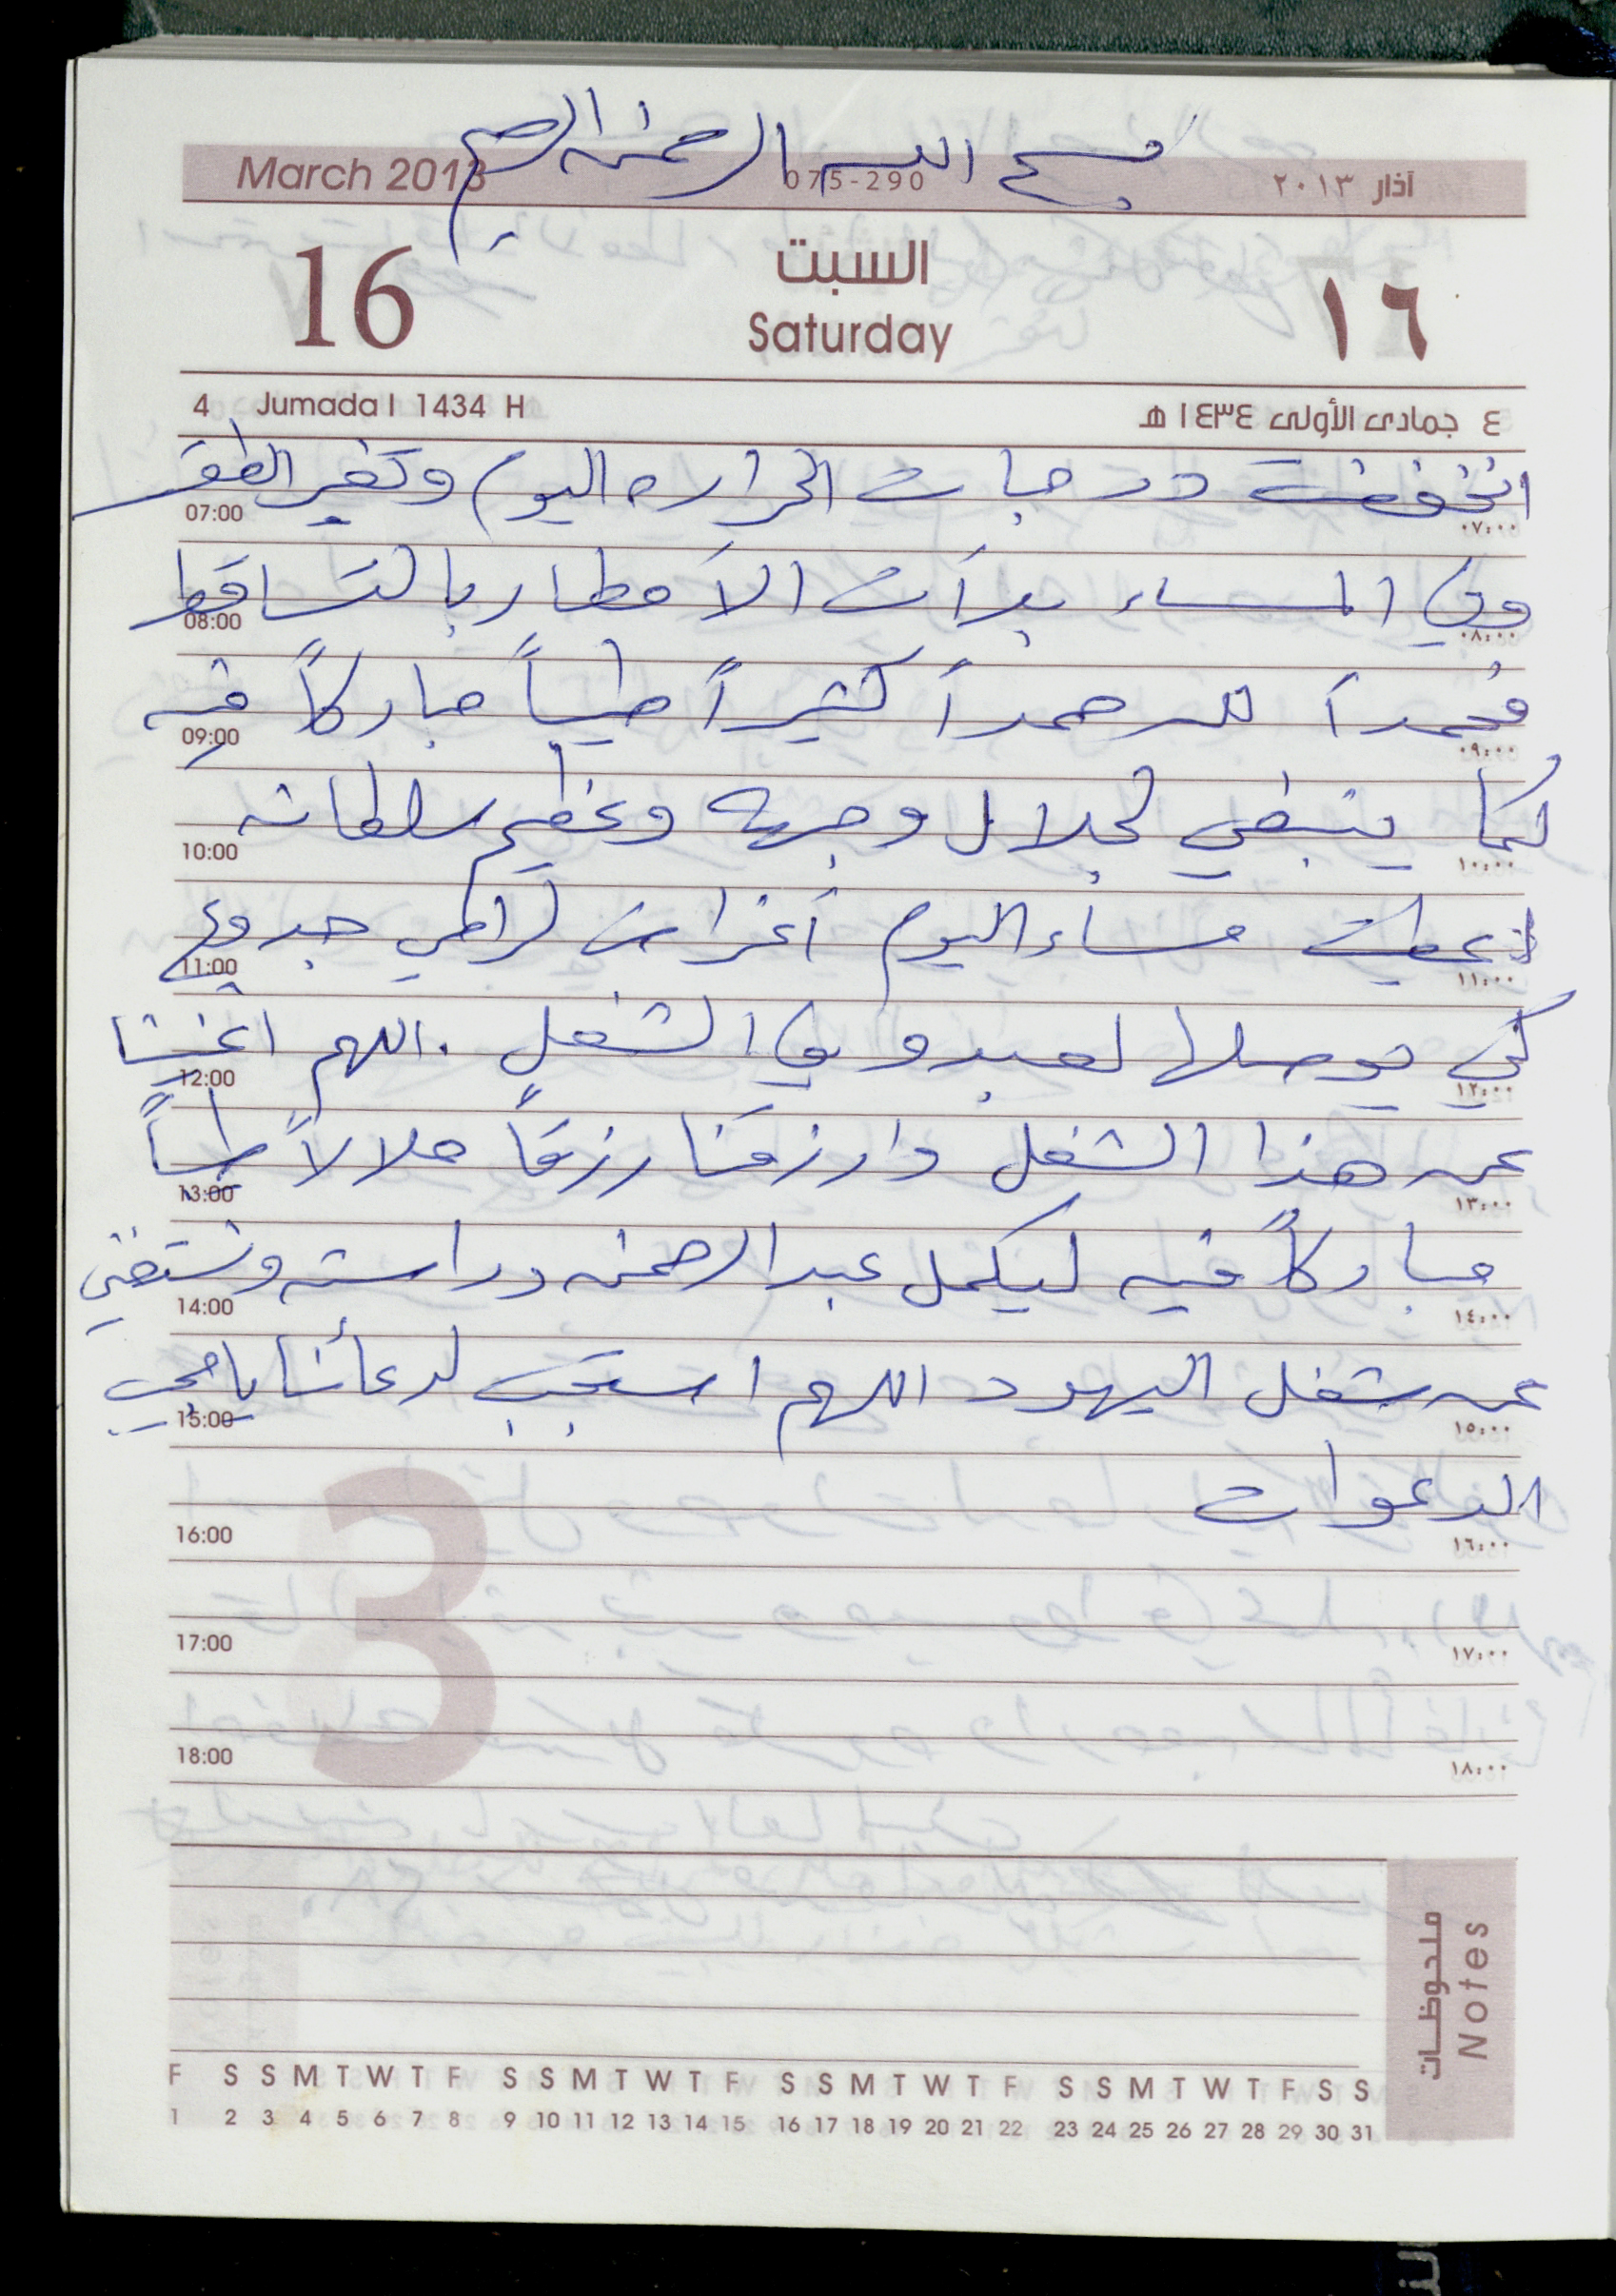 بسم الله الرحمن الرحيم
March 2013 075-290 آذار ٢٠١٣
16 السبت ١٦
Saturday
4 Jumada I 1434 H ٤ جمادى الأولى ١٤٣٤ هـ
انخفضت درجات الحراره اليوم وتغير الطقس
07:00 ٠٧:٠٠
وفي المساء بدأت الأمطار بالتساقط
08:00 ٠٨:٠٠
فحمداً لله حمداً كثيراً طيباً مباركاً فيه
09:00 ٠٩:٠٠
كما ينبغي لجلال وجهه وعظيم سلطانه
10:00 ١٠:٠٠
اعطيت مساء اليوم أغراض لرامي جدوع
11:00 ١١:٠٠
لكي يوصلها لعبدو في الشغل . اللهم اغننا
12:00 ١٢:٠٠
عن هذا الشغل وارزقنا رزقاً حلالاً طيباً
13:00 ١٣:٠٠
مباركاً فيه ليكمل عبدالرحمن دراسته ونستغني
14:00 ١٤:٠٠
عن شغل اليهود اللهم استجب لدعائنا يا مجيب
15:00 ١٥:٠٠
الدعوات
16:00 ١٦:٠٠
17:00 ١٧:٠٠
18:00 ١٨:٠٠
3
ملحوظات
Notes
F S S M T W T F S S M T W T F S S M T W T F S S M T W T F S S
1 2 3 4 5 6 7 8 9 10 11 12 13 14 15 16 17 18 19 20 21 22 23 24 25 26 27 28 29 30 31